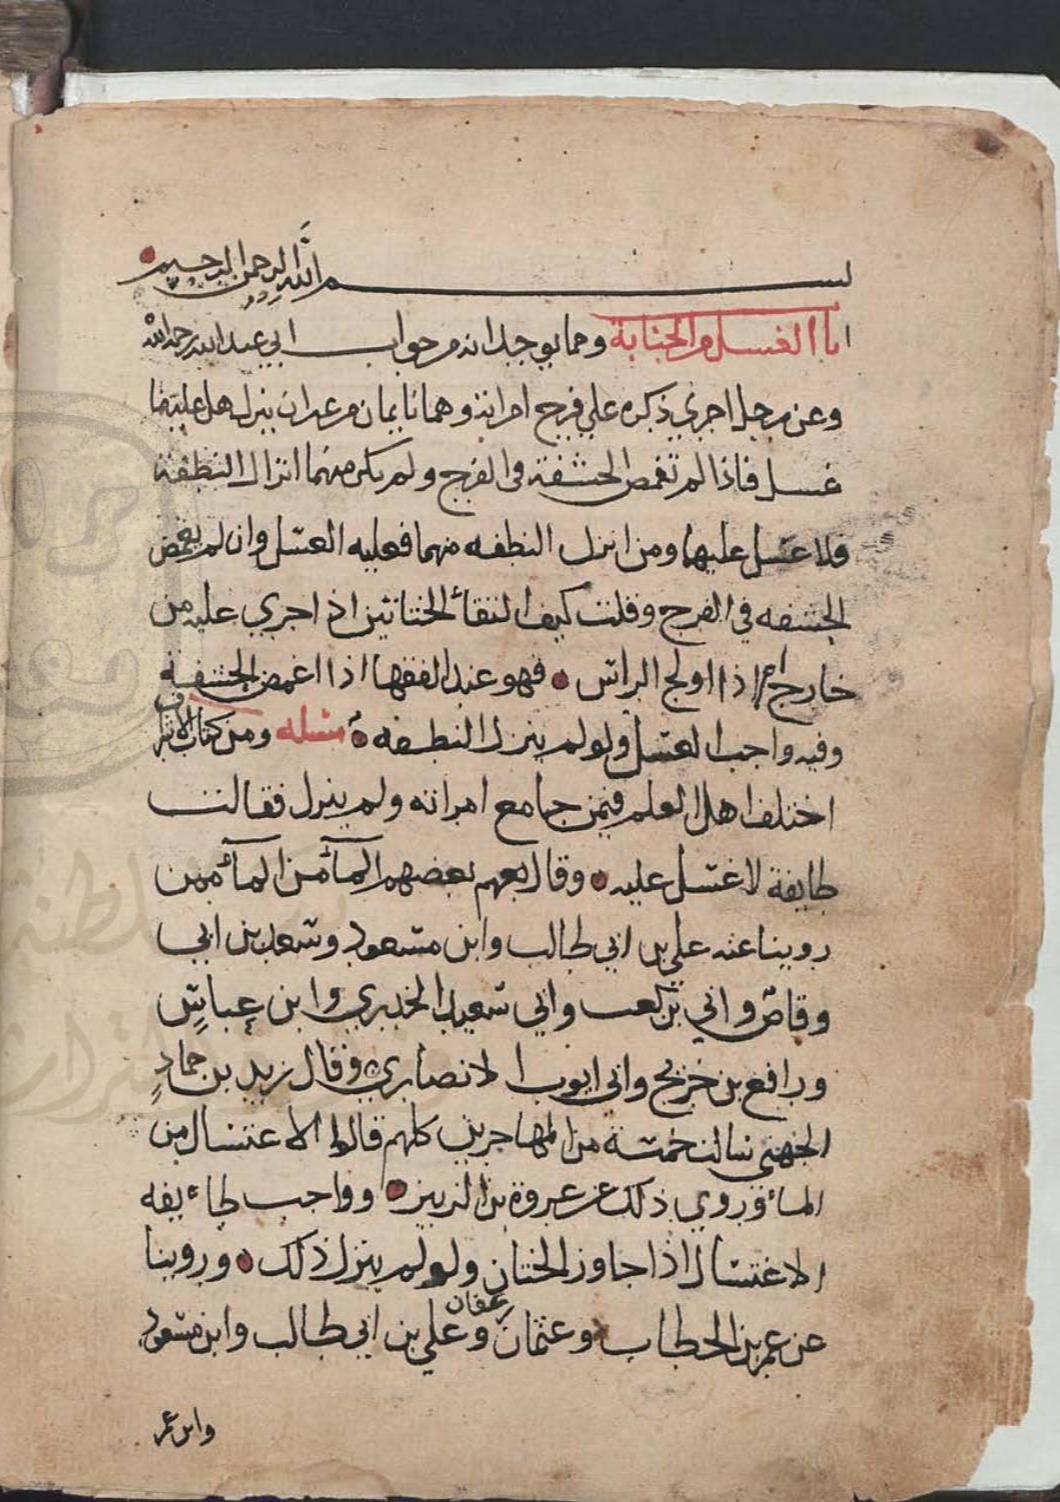 بسم الله الرحمن الرحيم
باب الغسل من الجنابة ومما يوجد انه من جواب ابي عبد الله رحمه الله
وعن رجل اجرى ذكره على فرج امراته وهما نايمان من غير ان ينزل هل عليهما
غسل فاذا لم تغمض الحشفة في الفرج ولم يكن منهما انزال النطفة
فلا غسل عليهما ومن انزل النطفه منهما فعليه الغسل وان لم يغمض
الحشفه في الفرج وقلت كيف التقاء الختانين اذا جرى عليه من
خارج ام اذا اولج الراس فهو عند الفقها اذا اغمض الحشفة
وفيه واجب الغسل ولو لم ينزل النطفه مسله ومن كتاب الاشراف
اختلف اهل العلم فيمن جامع امراته ولم ينزل فقالت
طايفة لا غسل عليه وقال بعضهم الماء من الماء ممن
روينا عنه علي بن ابي طالب وابن مسعود وسعد بن ابي
وقاص وابي بن كعب وابي سعيد الخدري وابن عباس
ورافع بن خديج وابي ايوب الانصاري وقال زيد بن حماد
الجهني سالت خمسة من المهاجرين كلهم قالوا الاغتسال من
الماء وروي ذلك عن عروة بن الزبير وواجب طاءيفه
الاغتسال اذا جاوز الختان ولو لم ينزل ذلك وروينا
عن عمر بن الخطاب وعثمان بن عفان وعلي بن ابي طالب وابن مسعود
وابن عمر